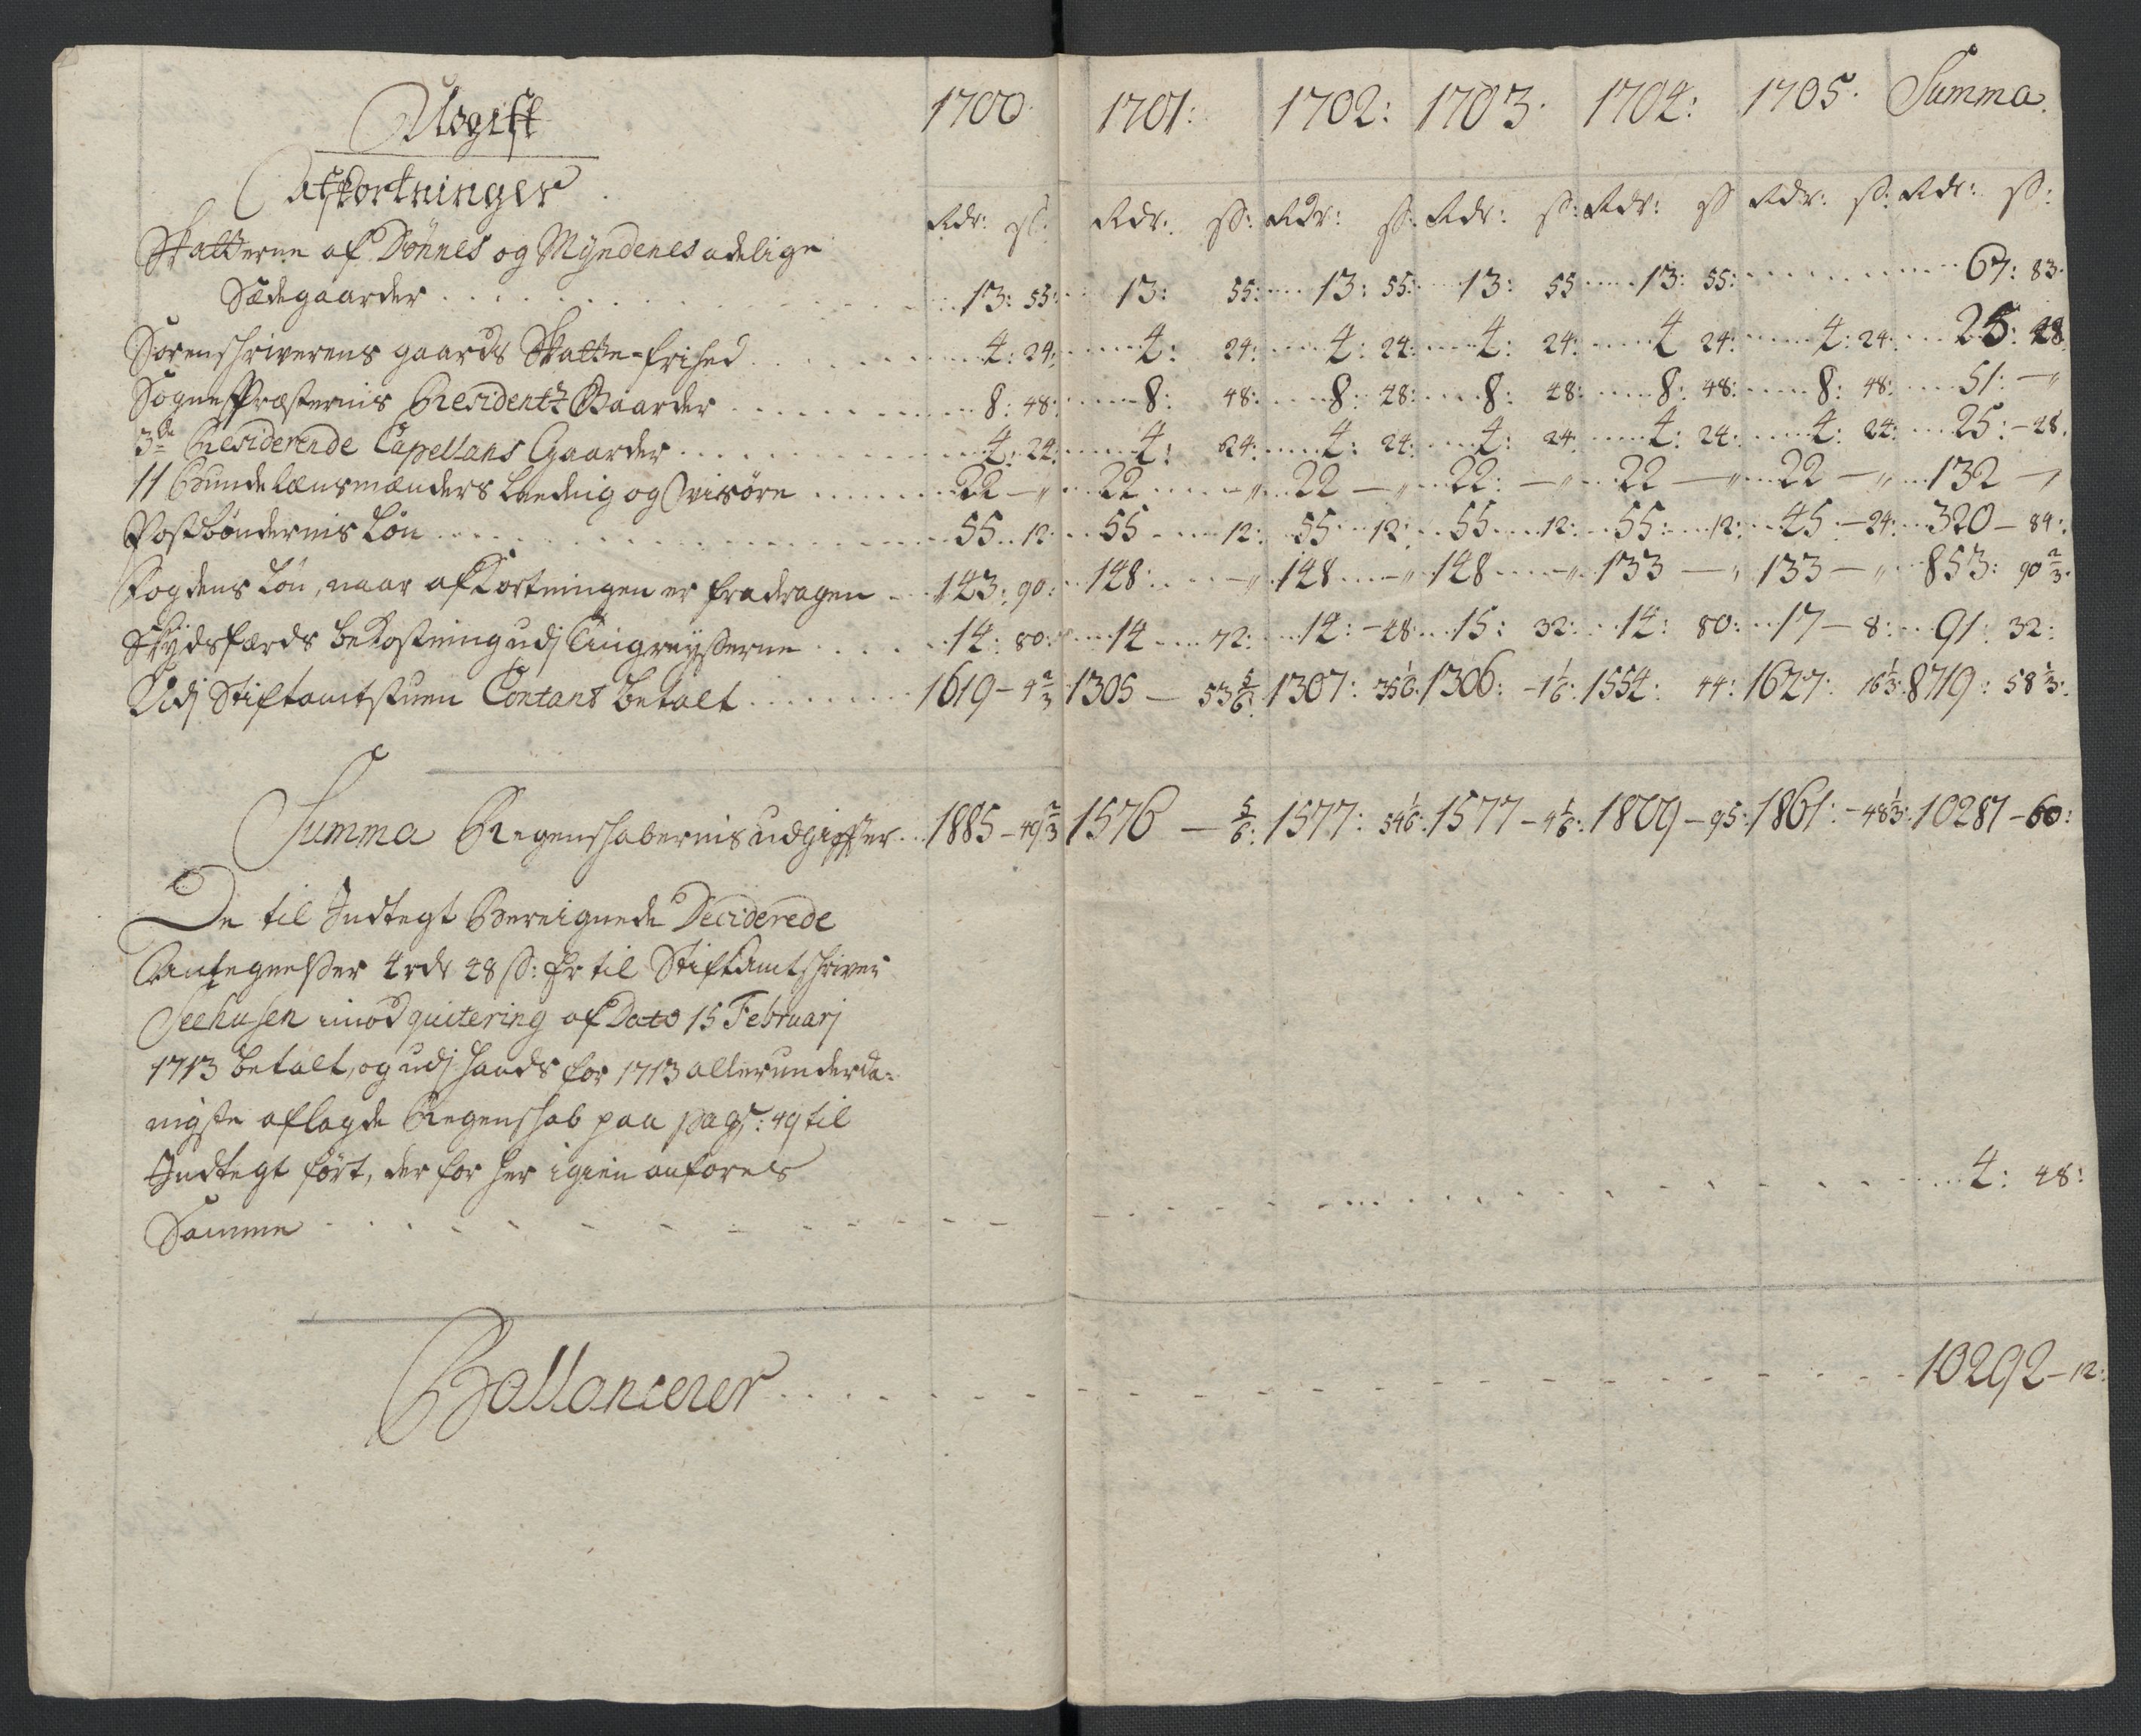 Udgift 1700. 1701: 1702: 1703. 1704: 1705. Summa.
Afkortninger
Rdr: ß: Rdr: ß: Rdr: ß: Rdr: ß: Rdr: ß Rdr: ß: Rdr: ß:
Skatterne af Dönnes og Myndenes adelige
Sædegaarder 13: 55: 13: 55: 13: 55: 13: 55 13: 55: 67: 83.
Sorenschriverens gaards Skatte=frihed 4: 24: 4: 24: 4: 24: 4: 24: 4 24: 4: 24: 25: 48
Sogne Præsternis Residentz Gaarder 8: 48: 8: 48: 8: 48: 8: 48: 8: 48: 8: 48: 51: — „
3de Residerende Capellans Gaarder 4: 24: 4: 24: 4: 24: 4: 24 4: 24: 4: 24: 25: - 48.
11 Bundelænsmænders Leednig og Wisöre 22 — „ 22 — „ 22 — „ 22: — „ 22 — „ 22 — „ 132 — „
Postbøndernis Løn 55 12: 55 12: 55 12: 55 12: 55: 12: 45: - 24: 320 - 84:
Fogdens Løn, naar afkortningen er fradragen 143: 90: 148: — „ 148 — „ 148 — „ 133 — „ 133 — „ 853: 90 2/3.
Skydsfærds bekostning udj Tingreyßerne 14: 80: 14 72: 14: - 48: 15: 32: 14: 80: 17 - 8: 91: 32:
Udj Stiftamtstuen Contant betalt 1619 - 4 2/3 1305 — 53 5/6: 1307: 35 1/6: 1306: - 1 1/6: 1554: 44: 1627: 16 1/3: 8719: 58 1/3:
Summa Regenschabernis udgiffter 1885 - 49 2/3 1576 — 5/6: 1577: 54 1/6: 1577 - 4 1/6: 1809 - 95: 1861: - 48 1/3: 10287 - 60:
De til Indtegt Bereignede Deciderede
Antegnelßer 4 rdr 48 ß: Er til Stiftamtschriver
Seehusen imod quitering af Dato 15 Februarj
1713 betalt, og udj hands for 1713 allerunderda=
nigste aflagde Regenschab paa pag: 49 til
Indtegt ført, der for her igien anføres
Samme 4: 48:
Ballancerer 10292 - 12: